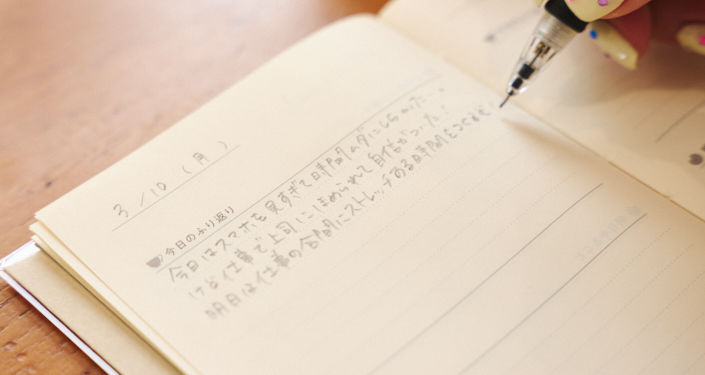 3/10(月)
今日のふり返り
今日はスマホを見すぎて時間ムダにしちゃった…。
けど仕事で上司にほめられて自信がついた!
明日は仕事の合間にストレッチする時間をつくるぞ